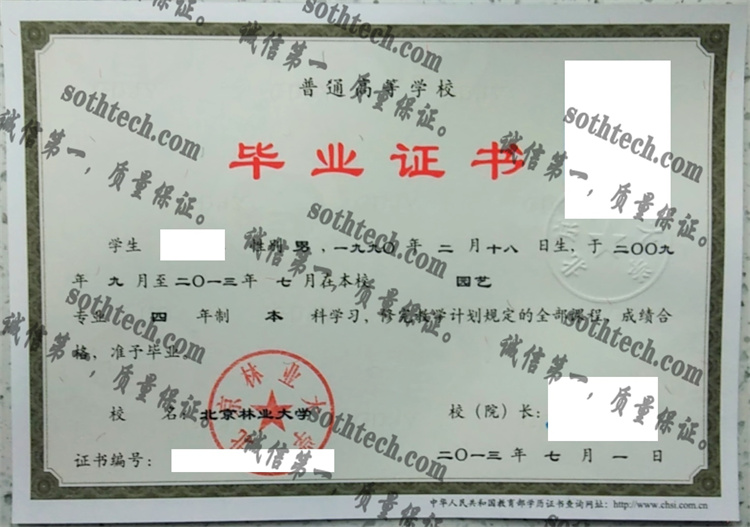 普通高等学校
毕业证书
学生 性别 男，一九九〇年 二 月十八 日生，于二〇〇九
年 九 月至二〇一三年 七 月在本校 园艺
专业 四 年制 本 科学习，修完教学计划规定的全部课程，成绩合
格，准予毕业。
校 名：北京林业大学
校（院）长：
北京林业大学
二〇一三年 七 月 一 日
证书编号：
中华人民共和国教育部学历证书查询网址：http://www.chsi.com.cn
sothtech.com
诚信第一，质量保证。
sothtech.com
诚信第一，质量保证。
sothtech.com
诚信第一，质量保证。
sothtech.com
诚信第一，质量保证。
sothtech.com
诚信第一，质量保证。
sothtech.com
诚信第一，质量保证。
sothtech.com
诚信第一，质量保证。
sothtech.com
诚信第一，质量保证。